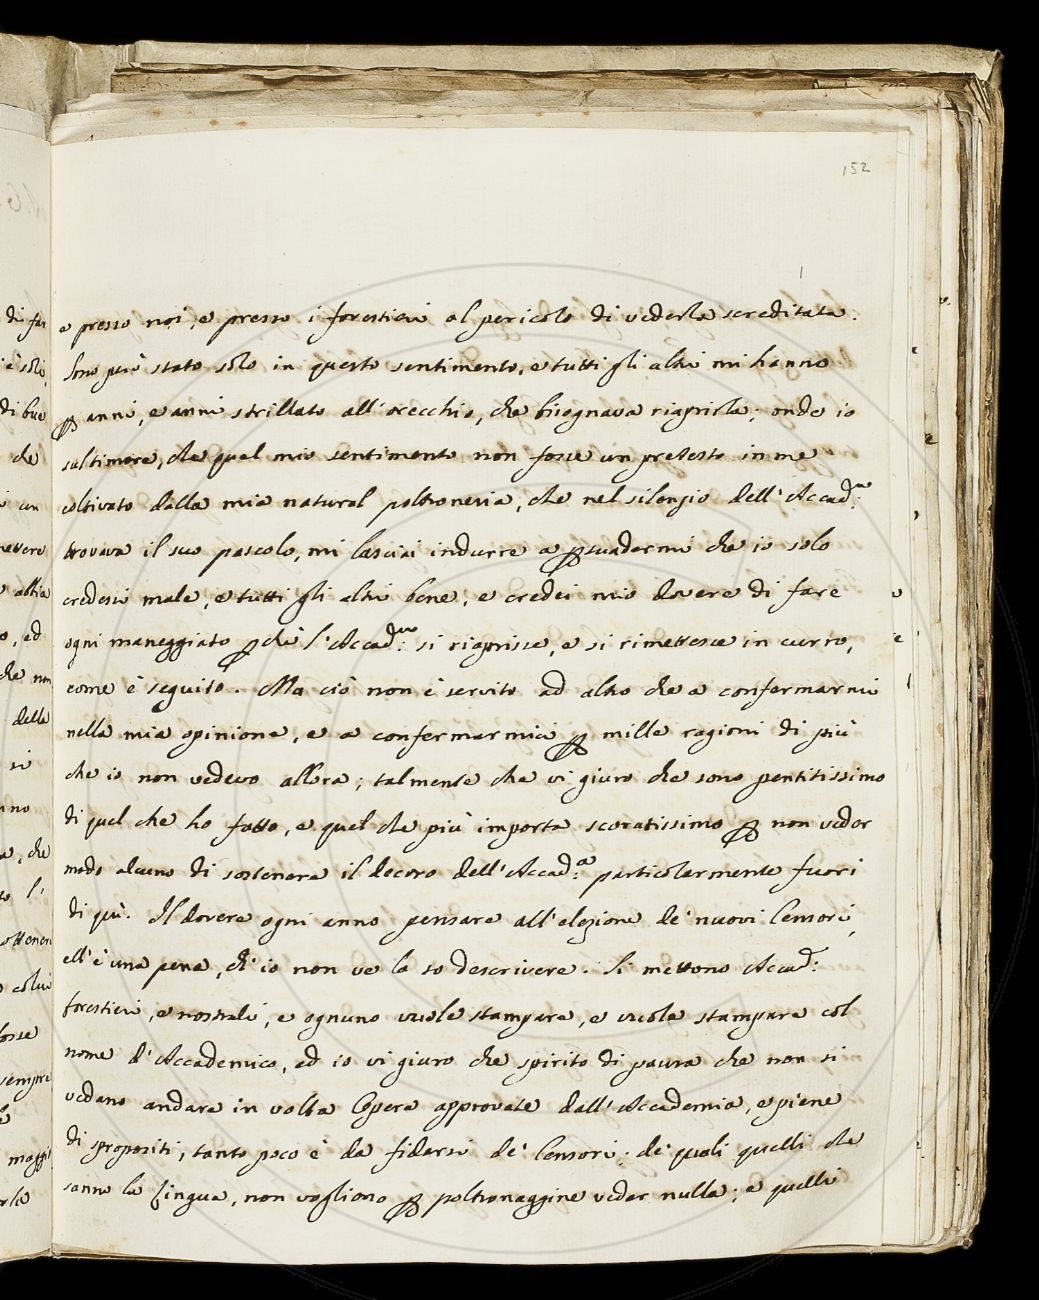 152
e presso noi, e presso i forestieri al pericolo di vederla screditata.
Sono però stato solo in questo sentimento, e tutti gli altri mi hanno
ꝑ anni, e anni strillato all'orecchio, che bisognava riaprirla; onde io
sul timore, che quel mio sentimento non fosse un pretesto in me
coltivato dalla mia natural poltroneria, che nel silenzio dell'Accad.ia
trovava il suo pascolo, mi lasciai indurre a ꝑsuadermi che io solo
credessi male, e tutti gli altri bene; e credei mio dovere di fare
ogni maneggiato ꝑchè l'Accad.ia si riaprisse, e si rimettesse in curro,
come è seguito. Ma ciò non è servito ad altro che a confermarmi
nella mia opinione, e a confermarmici ꝑ mille ragioni di più
che io non vedevo allora; talmente che vi giuro che sono pentitissimo
di quel che ho fatto, e quel che più importa scoratissimo ꝑ non veder
modo alcuno di sostenere il decoro dell'Accad.a particolarmente fuori
di quì. Il dovere ogni anno pensare all'elezione de' nuovi Censori,
ell'è una pena, ch'io non ve la so descrivere. Si mettono Accad.
forestieri, e nostrali, e ognuno vuole stampare, e vuole stampare col
nome d'Accademico, ed io vi giuro che spirito di paura che non si
vedano andare in volta Opere approvate dall'Accademia, e piene
di spropositi, tanto poco è da fidarsi de' Censori; de' quali quelli che
sanno la Lingua, non vogliono ꝑ poltronaggine veder nulla; e quelli